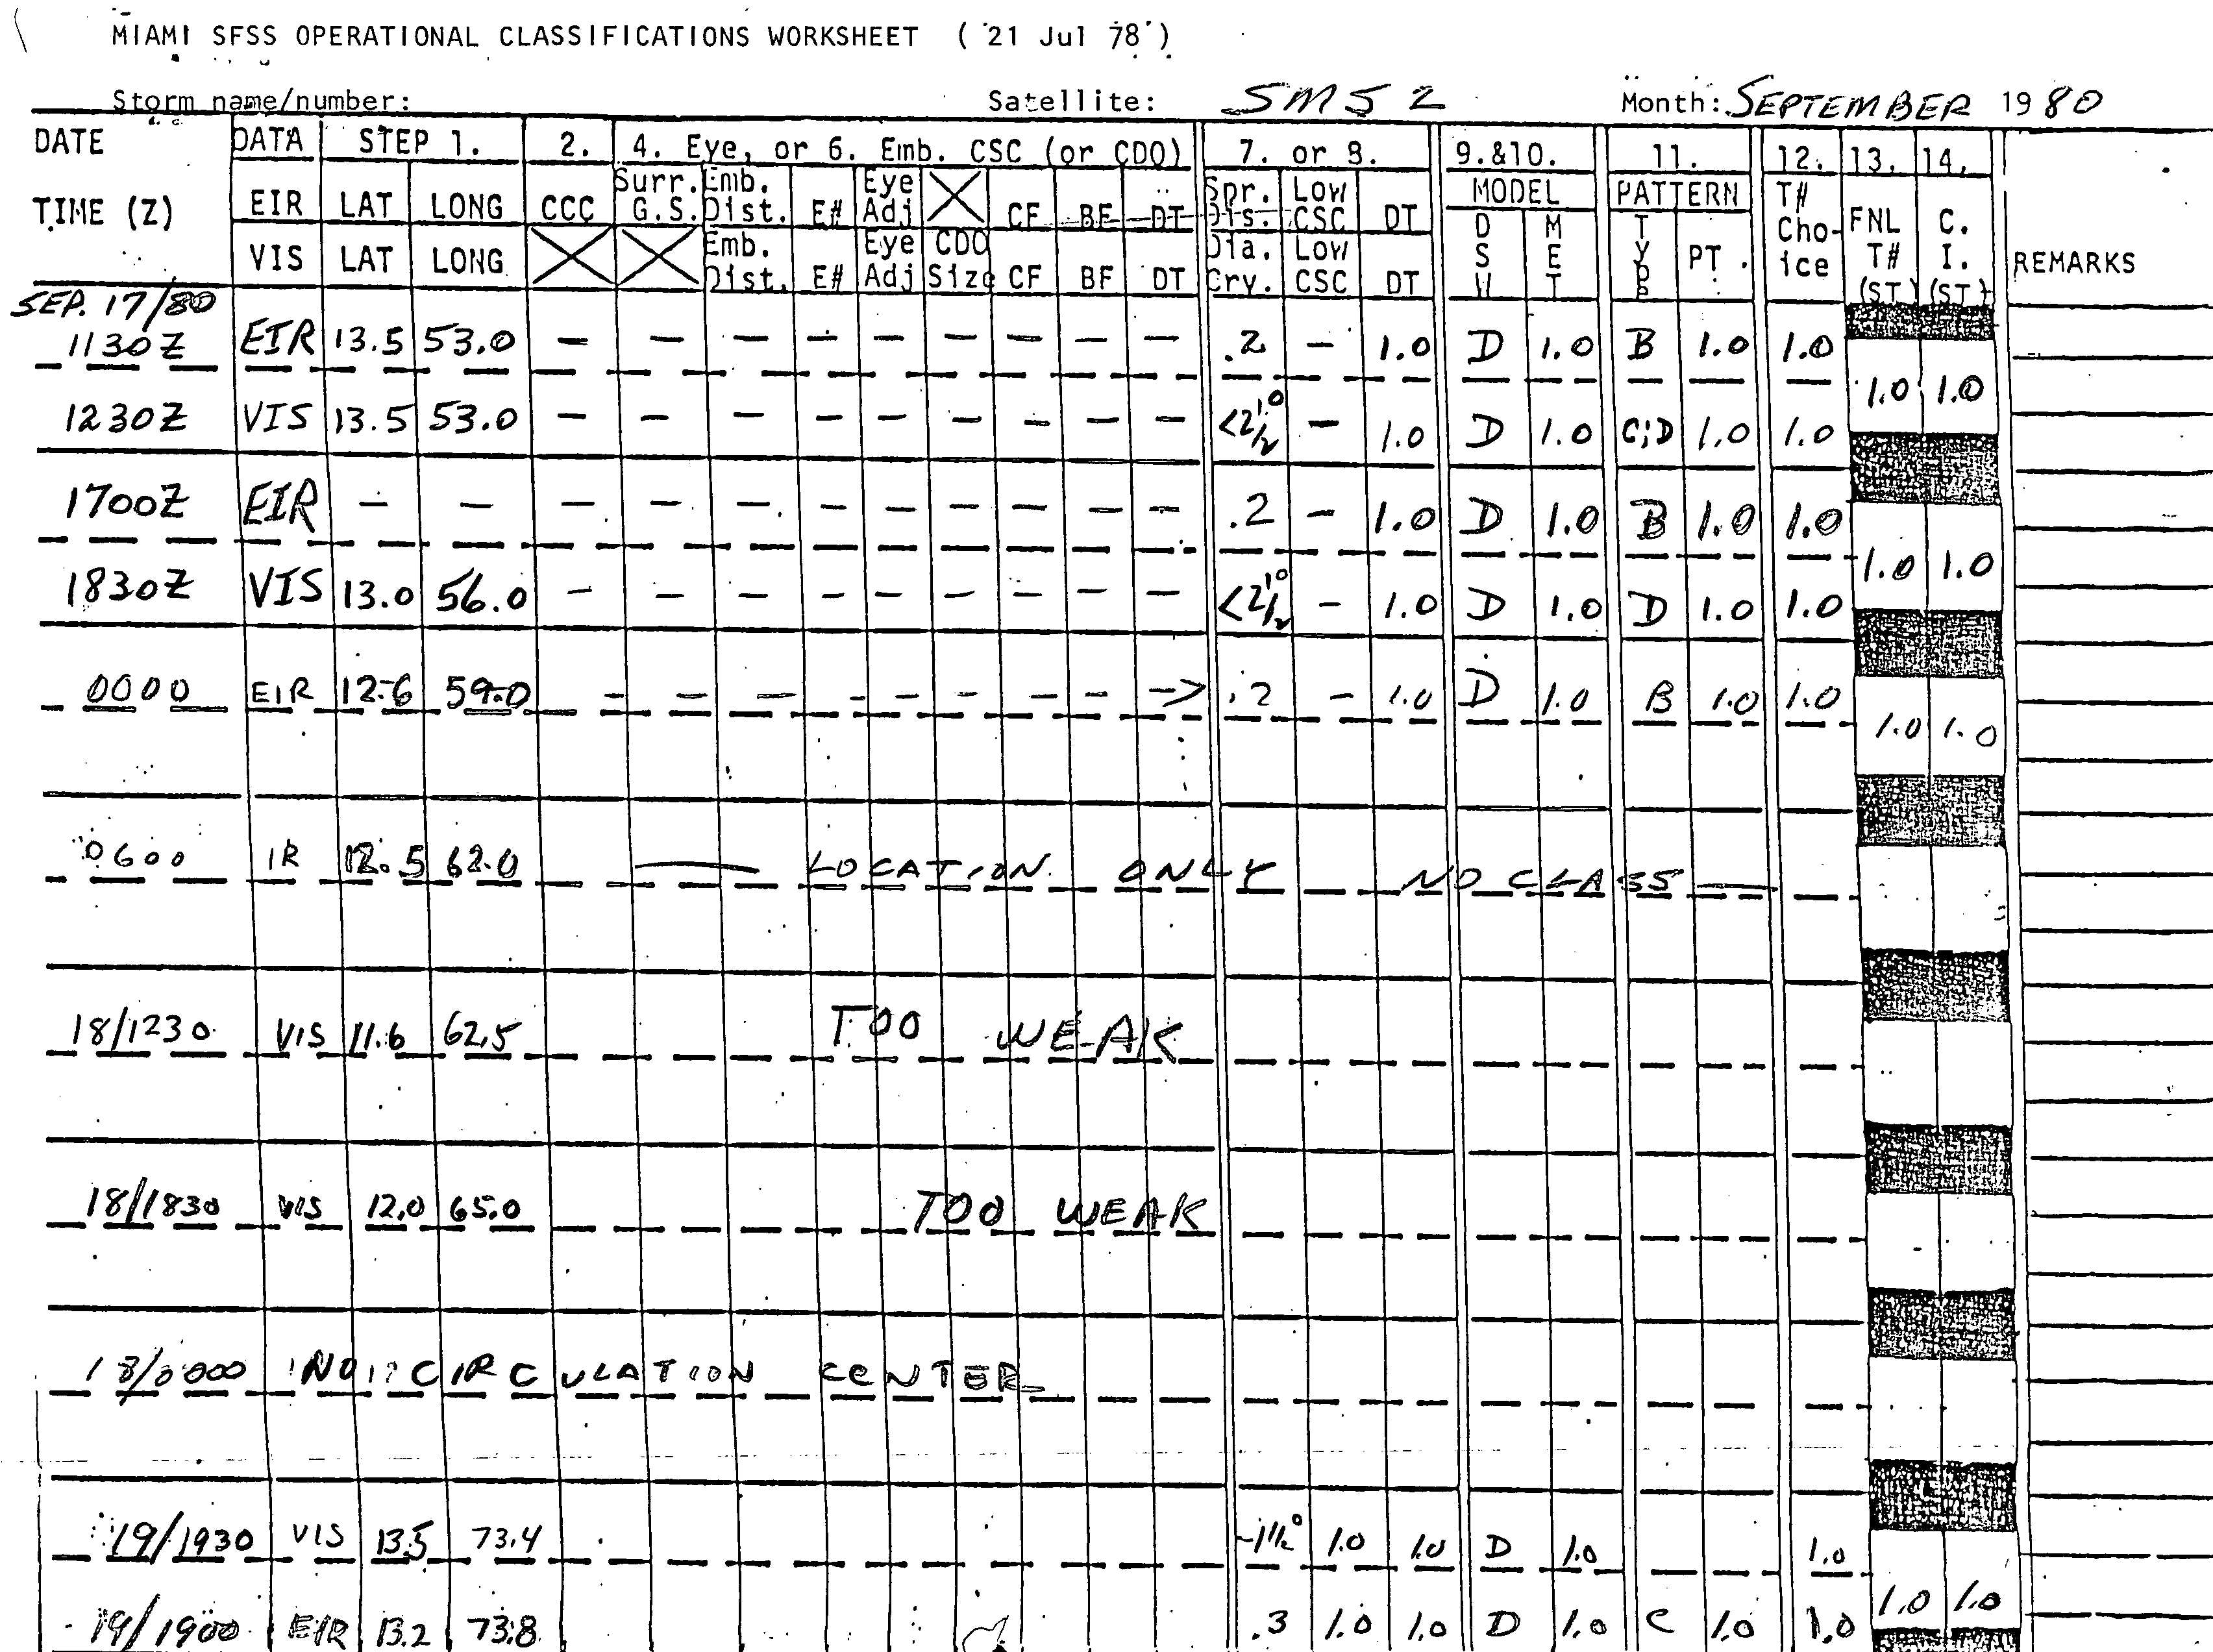 MIAMI SFSS OPERATIONAL CLASSIFICATIONS WORKSHEET ( 21 Jul 78 )
Storm name/number: Satellite: SMS 2 Month: SEPTEMBER 1980
DATE DATA STEP 1. 2. 4. Eye, or 6. Emb. CSC (or CDO) 7. or 8. 9.&10. 11. 12. 13. 14.
TIME (Z) EIR LAT LONG CCC Surr. G.S. Emb. Dist. E# Eye Adj CF BF DT Spr. Dis. Low CSC DT MODEL PATTERN T# Choice FNL T# (ST) C. I. (ST) REMARKS
VIS LAT LONG Emb. Dist. E# Eye Adj CDO Size CF BF DT Dia. Cry. Low CSC DT DSW MET Type PT.
SEP. 17/80
1130Z EIR 13.5 53.0 — — — — — — — — — .2 — 1.0 D 1.0 B 1.0 1.0
1.0 1.0
1230Z VIS 13.5 53.0 — — — — — — — — — <2 1/2° 1.0 — 1.0 D 1.0 C;D 1.0 1.0
1700Z EIR — — — — — — — — — — — .2 — 1.0 D 1.0 B 1.0 1.0
1.0 1.0
1830Z VIS 13.0 56.0 — — — — — — — — — <2 1/2° — 1.0 D 1.0 D 1.0 1.0
0000 EIR 12.6 59.0 — — — — — — — — —> .2 — 1.0 D 1.0 B 1.0 1.0
1.0 1.0
0600 IR 12.5 62.0 — LOCATION ONLY NO CLASS —
18/1230 VIS 11.6 62.5 TOO WEAK
18/1830 VIS 12.0 65.0 TOO WEAK
18/0000 NO CIRCULATION CENTER
19/1930 VIS 13.5 73.4 ~1 1/2° 1.0 1.0 D 1.0 1.0
1.0 1.0
19/1900 EIR 13.2 73.8 .3 1.0 1.0 D 1.0 C 1.0 1.0